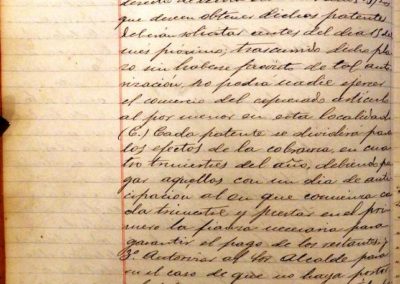 que deseen obtener dichos patentes
deberán solicitar antes del dia 15 de
mes próximo, trascurrido dicho pla
zo sin haberse provisto de tal auto
rización, no podrá nadie ejercer
el comercio del espresado articulo
al por menor en esta localidad
(C.) Cada patente se dividirá para
los efectos de la cobranza, en cua
tro trimestres del año, debiendo pa
gar aquellos con un dia de anti
cipación al en que comienza ca
da trimestre y prestar en el pri
mero la fianza necesaria para
garantir el pago de los restantes, y
3º Autorizar al Sor Alcalde para
en el caso de que no haya